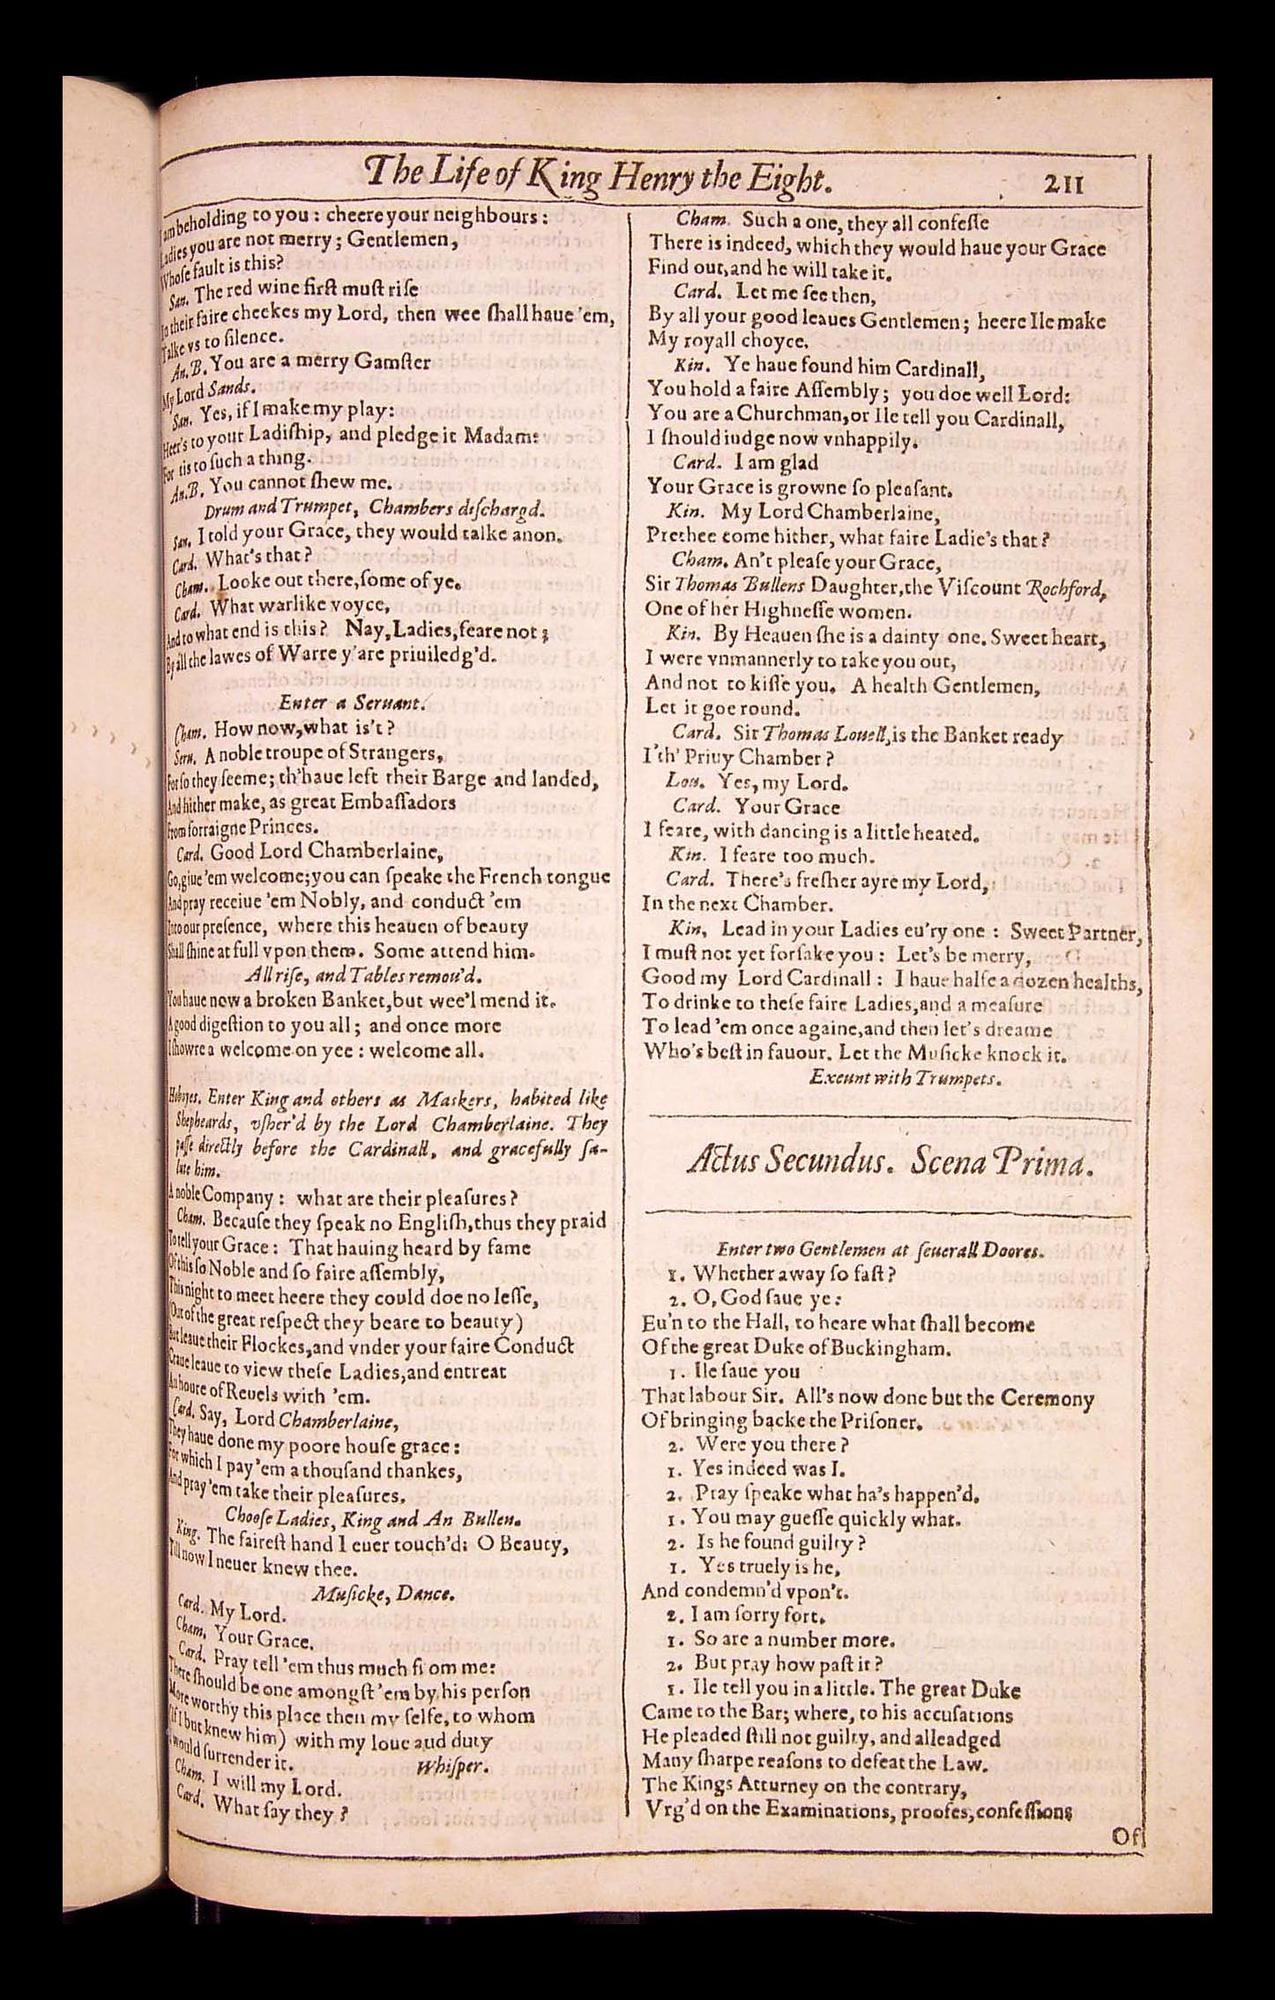 The Life of King Henry the Eight. 211
I am beholding to you : cheere your neighbours :
Ladies you are not merry ; Gentlemen,
Whoſe fault is this?
San. The red wine firſt muſt riſe
In their faire cheekes my Lord, then wee ſhall haue 'em,
Talke vs to ſilence.
An.B. You are a merry Gamſter
My Lord Sands.
San. Yes, if I make my play:
Heer's to your Ladiſhip, and pledge it Madam:
For tis to ſuch a thing.
An.B. You cannot ſhew me.
Drum and Trumpet, Chambers diſchargd.
San. I told your Grace, they would talke anon.
Card. What's that?
Cham. Looke out there, ſome of ye.
Card. What warlike voyce,
And to what end is this? Nay, Ladies, feare not;
By all the lawes of Warre y'are priuiledg'd.
Enter a Seruant.
Cham. How now, what is't?
Seru. A noble troupe of Strangers,
For ſo they ſeeme; th'haue left their Barge and landed,
And hither make, as great Embaſſadors
From forraigne Princes.
Card. Good Lord Chamberlaine,
Go, giue 'em welcome; you can ſpeake the French tongue
And pray receiue 'em Nobly, and conduct 'em
Into our preſence, where this heauen of beauty
Shall ſhine at full vpon them. Some attend him.
All riſe, and Tables remou'd.
You haue now a broken Banket, but wee'l mend it.
A good digeſtion to you all; and once more
I ſhowre a welcome on yee : welcome all.
Hoboyes. Enter King and others as Maskers, habited like
Shepheards, vſher'd by the Lord Chamberlaine. They
paſſe directly before the Cardinall, and gracefully ſa-
lute him.
A noble Company : what are their pleaſures?
Cham. Becauſe they ſpeak no Engliſh, thus they praid
To tell your Grace : That hauing heard by fame
Of this ſo Noble and ſo faire aſſembly,
This night to meet heere they could doe no leſſe,
(Out of the great reſpect they beare to beauty)
But leaue their Flockes, and vnder your faire Conduct
Craue leaue to view theſe Ladies, and entreat
An houre of Reuels with 'em.
Card. Say, Lord Chamberlaine,
They haue done my poore houſe grace :
For which I pay 'em a thouſand thankes,
And pray 'em take their pleaſures.
Chooſe Ladies, King and An Bullen.
King. The faireſt hand I euer touch'd: O Beauty,
Till now I neuer knew thee.
Muſicke, Dance.
Card. My Lord.
Cham. Your Grace.
Card. Pray tell 'em thus much from me:
There ſhould be one amongſt 'em by his perſon
More worthy this place then my ſelfe, to whom
(If I but knew him) with my loue aud duty
I would ſurrender it. Whiſper.
Cham. I will my Lord.
Card. What ſay they?
Cham. Such a one, they all confeſſe
There is indeed, which they would haue your Grace
Find out, and he will take it.
Card. Let me ſee then,
By all your good leaues Gentlemen; heere Ile make
My royall choyce.
Kin. Ye haue found him Cardinall,
You hold a faire Aſſembly; you doe well Lord:
You are a Churchman, or Ile tell you Cardinall,
I ſhould iudge now vnhappily.
Card. I am glad
Your Grace is growne ſo pleaſant.
Kin. My Lord Chamberlaine,
Prethee come hither, what faire Ladie's that?
Cham. An't pleaſe your Grace,
Sir Thomas Bullens Daughter, the Viſcount Rochford,
One of her Highneſſe women.
Kin. By Heauen ſhe is a dainty one. Sweet heart,
I were vnmannerly to take you out,
And not to kiſſe you. A health Gentlemen,
Let it goe round.
Card. Sir Thomas Louell, is the Banket ready
I'th' Priuy Chamber?
Lou. Yes, my Lord.
Card. Your Grace
I feare, with dancing is a little heated.
Kin. I feare too much.
Card. There's freſher ayre my Lord,
In the next Chamber.
Kin. Lead in your Ladies eu'ry one : Sweet Partner,
I muſt not yet forſake you : Let's be merry,
Good my Lord Cardinall : I haue halfe a dozen healths,
To drinke to theſe faire Ladies, and a meaſure
To lead 'em once againe, and then let's dreame
Who's beſt in fauour. Let the Muſicke knock it.
Exeunt with Trumpets.
Actus Secundus. Scena Prima.
Enter two Gentlemen at ſeuerall Doores.
1. Whether away ſo faſt?
2. O, God ſaue ye:
Eu'n to the Hall, to heare what ſhall become
Of the great Duke of Buckingham.
1. Ile ſaue you
That labour Sir. All's now done but the Ceremony
Of bringing backe the Priſoner.
2. Were you there?
1. Yes indeed was I.
2. Pray ſpeake what ha's happen'd.
1. You may gueſſe quickly what.
2. Is he found guilty?
1. Yes truely is he,
And condemn'd vpon't.
2. I am ſorry fort.
1. So are a number more.
2. But pray how paſt it?
1. Ile tell you in a little. The great Duke
Came to the Bar; where, to his accuſations
He pleaded ſtill not guilty, and alleadged
Many ſharpe reaſons to defeat the Law.
The Kings Atturney on the contrary,
Vrg'd on the Examinations, proofes, confeſſions
Of